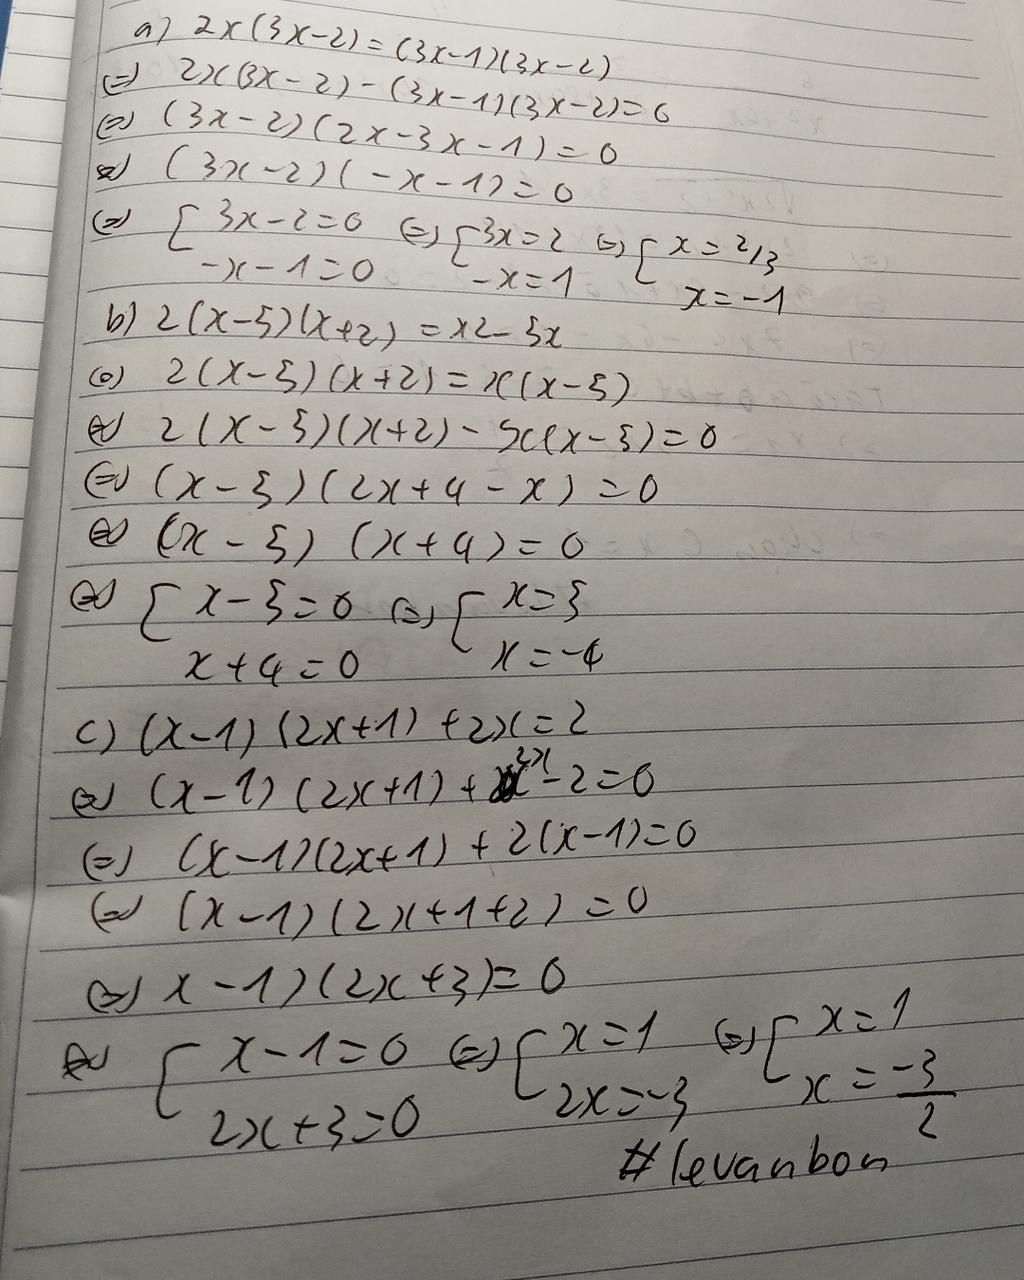 a) 2x(3x-2) = (3x-1)(3x-2)
(=) 2x(3x-2) - (3x-1)(3x-2)=0
(=) (3x-2)(2x-3x-1)=0
(=) (3x-2)(-x-1)=0
(=) [ 3x-2=0 (=) [ 3x=2 (=) [ x=2/3
-x-1=0 -x=1 x=-1
b) 2(x-5)(x+2) = x2-5x
(=) 2(x-5)(x+2) = x(x-5)
(=) 2(x-5)(x+2) - x(x-5)=0
(=) (x-5)(2x+4-x)=0
(=) (x-5) (x+4)=0
(=) [ x-5=0 (=) [ x=5
x+4=0 x=-4
c) (x-1)(2x+1)+2x=2
(=) (x-1)(2x+1)+2x-2=0
(=) (x-1)(2x+1)+2(x-1)=0
(=) (x-1)(2x+1+2)=0
(=) x-1)(2x+3)=0
(=) [ x-1=0 (=) [ x=1 (=) [ x=1
2x+3=0 2x=-3 x=-3/2
#levanbon